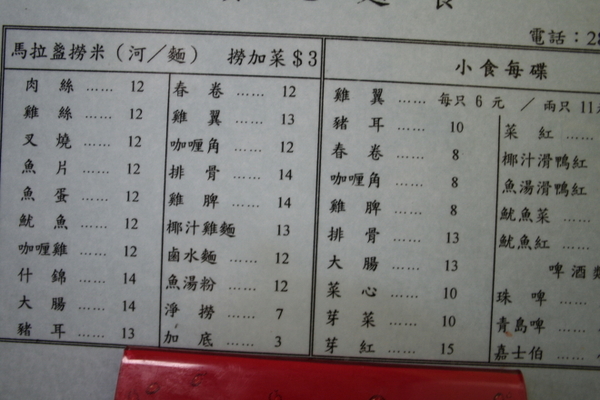 電話：28
馬拉盞撈米（河／麵） 撈加菜＄3
肉絲 …… 12
雞絲 …… 12
叉燒 …… 12
魚片 …… 12
魚蛋 …… 12
魷魚 …… 12
咖喱雞 …… 12
什錦 …… 14
大腸 …… 14
豬耳 …… 13
春卷 …… 12
雞翼 …… 13
咖喱角 …… 12
排骨 …… 14
雞脾 …… 14
椰汁雞麵 13
鹵水麵 …… 12
魚湯粉 …… 12
淨撈 …… 7
加底 …… 3
小食每碟
雞翼 …… 每只 6 元 ／ 兩只 11
豬耳 …… 10
春卷 …… 8
咖喱角 …… 8
雞脾 …… 8
排骨 …… 13
大腸 …… 13
菜心 …… 10
芽菜 …… 10
芽紅 …… 15
菜紅 ……
椰汁滑鴨紅
魚湯滑鴨紅
魷魚菜 ……
魷魚紅 ……
啤酒類
珠啤 ……
青島啤 ……
嘉士伯 ……